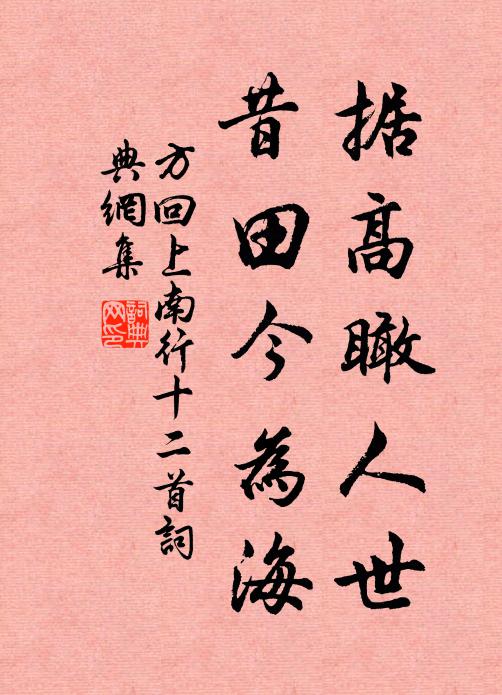 据高瞰人世
昔田今為海
方回上南行十二首詞
典網集
詞典
网印